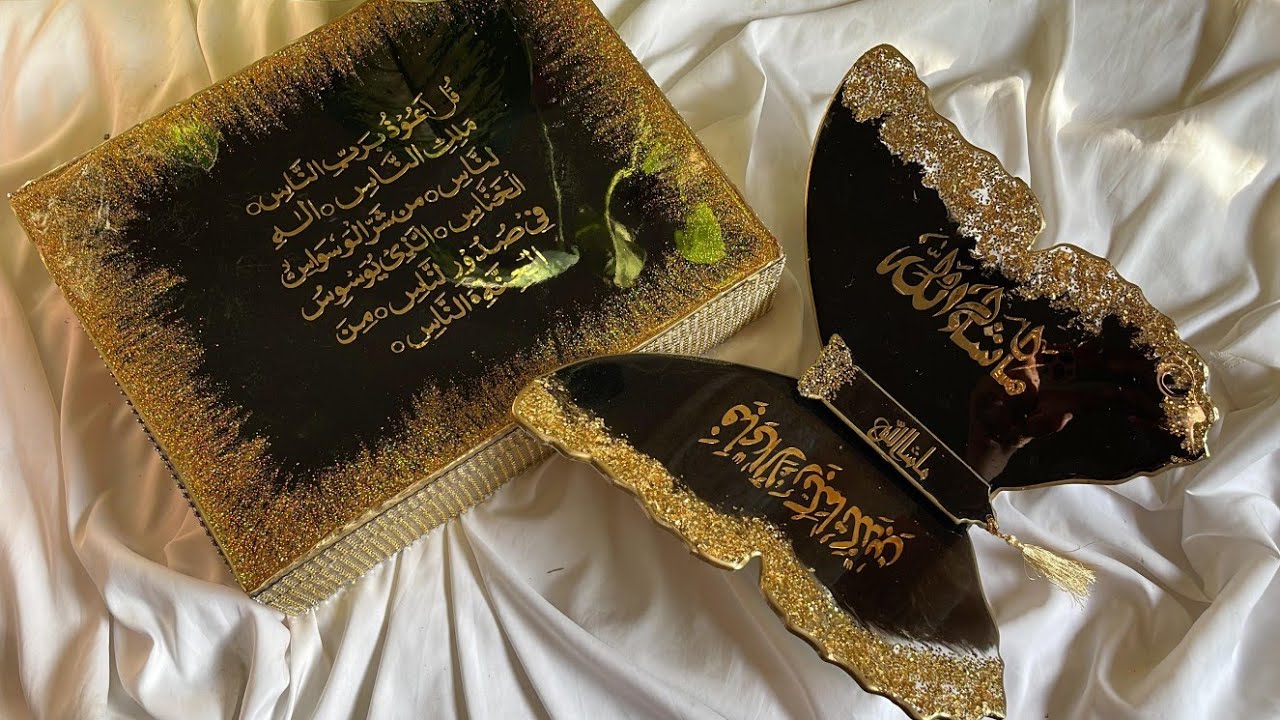 قُل اَعُوذُ بِرَبِّ النَّاسِ ○
مَلِكِ النَّاسِ ○ اِلٰهِ
لنَّاسِ ○ مِن شَرِّ الوَسوَاسِ
الخَنَّاسِ ○ الَّذِى يُوَسوِسُ
فِى صُدُورِ لنَّاسِ ○ مِنَ
الجِنَّةِ وَ النَّاسِ ○
ماشاءالله
ماشاالله